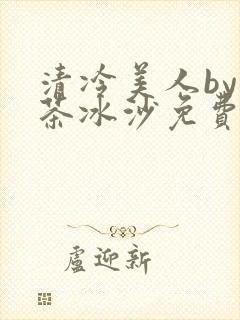 清冷美人by
茶冰沙免費
盧迎新